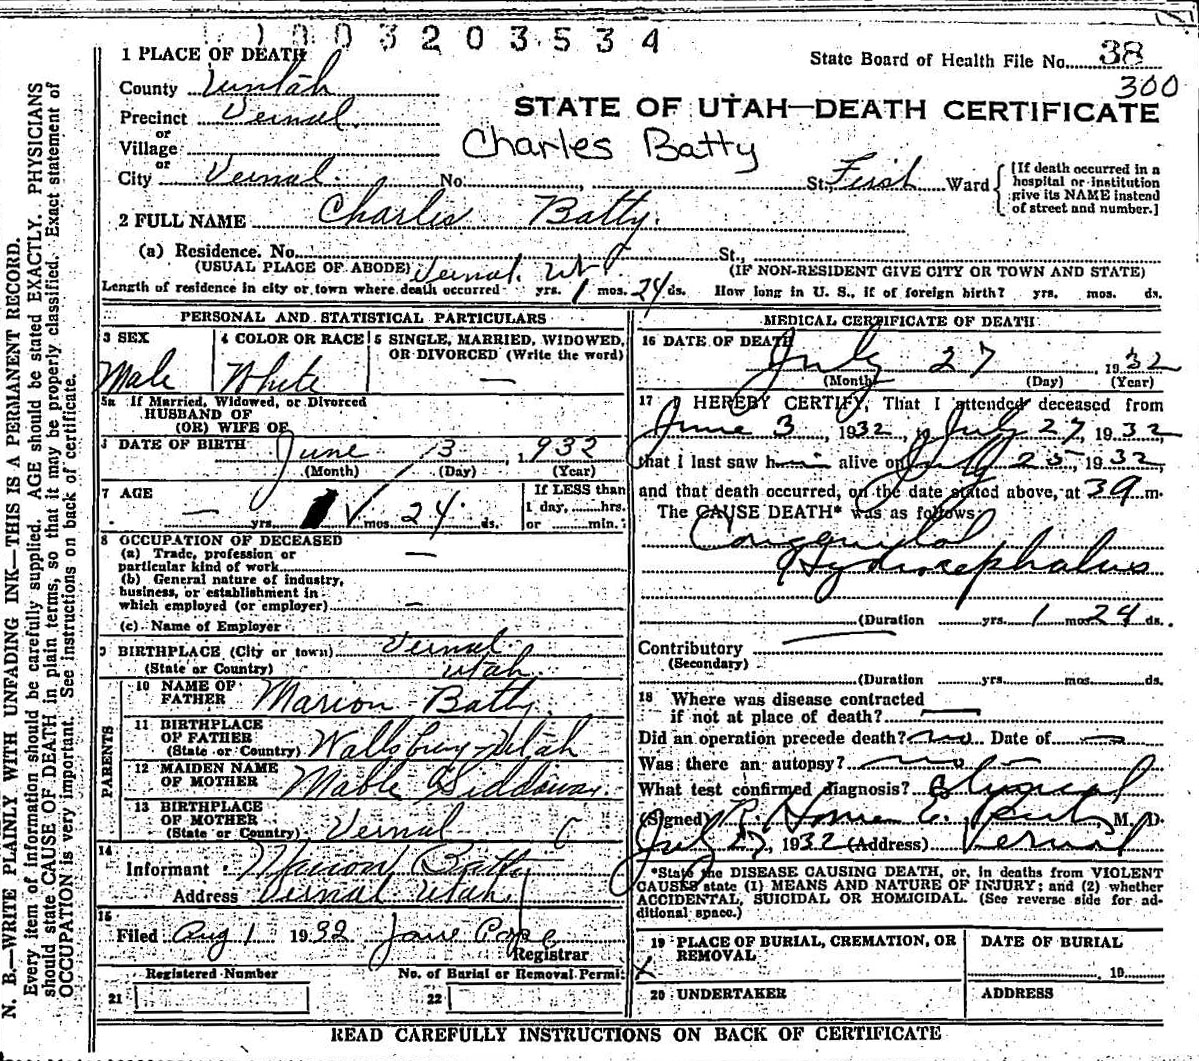 1003203534
State Board of Health File No. 38
300
1 PLACE OF DEATH
County Uintah
STATE OF UTAH—DEATH CERTIFICATE
Precinct Vernal
or
Village
Charles Batty
or
City Vernal No. St., First Ward
[If death occurred in a hospital or institution give its NAME instead of street and number.]
2 FULL NAME Charles Batty.
(a) Residence. No. St.,
(USUAL PLACE OF ABODE) Vernal, Ut (IF NON-RESIDENT GIVE CITY OR TOWN AND STATE)
Length of residence in city or town where death occurred yrs. 1 mos. 24 ds. How long in U. S., if of foreign birth? yrs. mos. ds.
PERSONAL AND STATISTICAL PARTICULARS
3 SEX Male
4 COLOR OR RACE White
5 SINGLE, MARRIED, WIDOWED, OR DIVORCED (Write the word) —
5a If Married, Widowed, or Divorced
HUSBAND OF
(OR) WIFE OF
DATE OF BIRTH June 3 1932
(Month) (Day) (Year)
7 AGE
— yrs. 1 mos. 24 ds.
If LESS than
1 day, hrs.
or min.
8 OCCUPATION OF DECEASED
(a) Trade, profession or
particular kind of work —
(b) General nature of industry,
business, or establishment in
which employed (or employer) —
(c) Name of Employer
9 BIRTHPLACE (City or town) Vernal
(State or Country) Utah
PARENTS
10 NAME OF FATHER Marion Batty
11 BIRTHPLACE OF FATHER (State or Country) Wallsburg Utah
12 MAIDEN NAME OF MOTHER Mable Siddoway
13 BIRTHPLACE OF MOTHER (State or Country) Vernal
14
Informant Marion Batty
Address Vernal Utah
15
Filed Aug 1 1932 Jane Pope
Registrar
Registered Number No. of Burial or Removal Permit
21 22
MEDICAL CERTIFICATE OF DEATH
16 DATE OF DEATH
July 27, 1932
(Month) (Day) (Year)
17 I HEREBY CERTIFY, That I attended deceased from
June 3, 1932, July 27, 1932
that I last saw him alive on July 25, 1932,
and that death occurred, on the date stated above, at 3 a m.
The CAUSE DEATH* was as follows:
Congenital
Hydrocephalus
(Duration yrs. 1 mos. 24 ds.
Contributory
(Secondary)
(Duration yrs. mos. ds.
18 Where was disease contracted
if not at place of death? —
Did an operation precede death? no Date of —
Was there an autopsy? no —
What test confirmed diagnosis? Clinical
(Signed) Homer E. , M. D.
July 27, 1932 (Address) Vernal
*State the DISEASE CAUSING DEATH, or, in deaths from VIOLENT
CAUSES state (1) MEANS AND NATURE OF INJURY; and (2) whether
ACCIDENTAL, SUICIDAL OR HOMICIDAL. (See reverse side for ad-
ditional space.)
19 PLACE OF BURIAL, CREMATION, OR REMOVAL
DATE OF BURIAL
, 19
20 UNDERTAKER
ADDRESS
READ CAREFULLY INSTRUCTIONS ON BACK OF CERTIFICATE
N. B.—WRITE PLAINLY WITH UNFADING INK—THIS IS A PERMANENT RECORD.
Every item of information should be carefully supplied. AGE should be stated EXACTLY. PHYSICIANS
should state CAUSE OF DEATH in plain terms, so that it may be properly classified. Exact statement of
OCCUPATION is very important. See instructions on back of certificate.